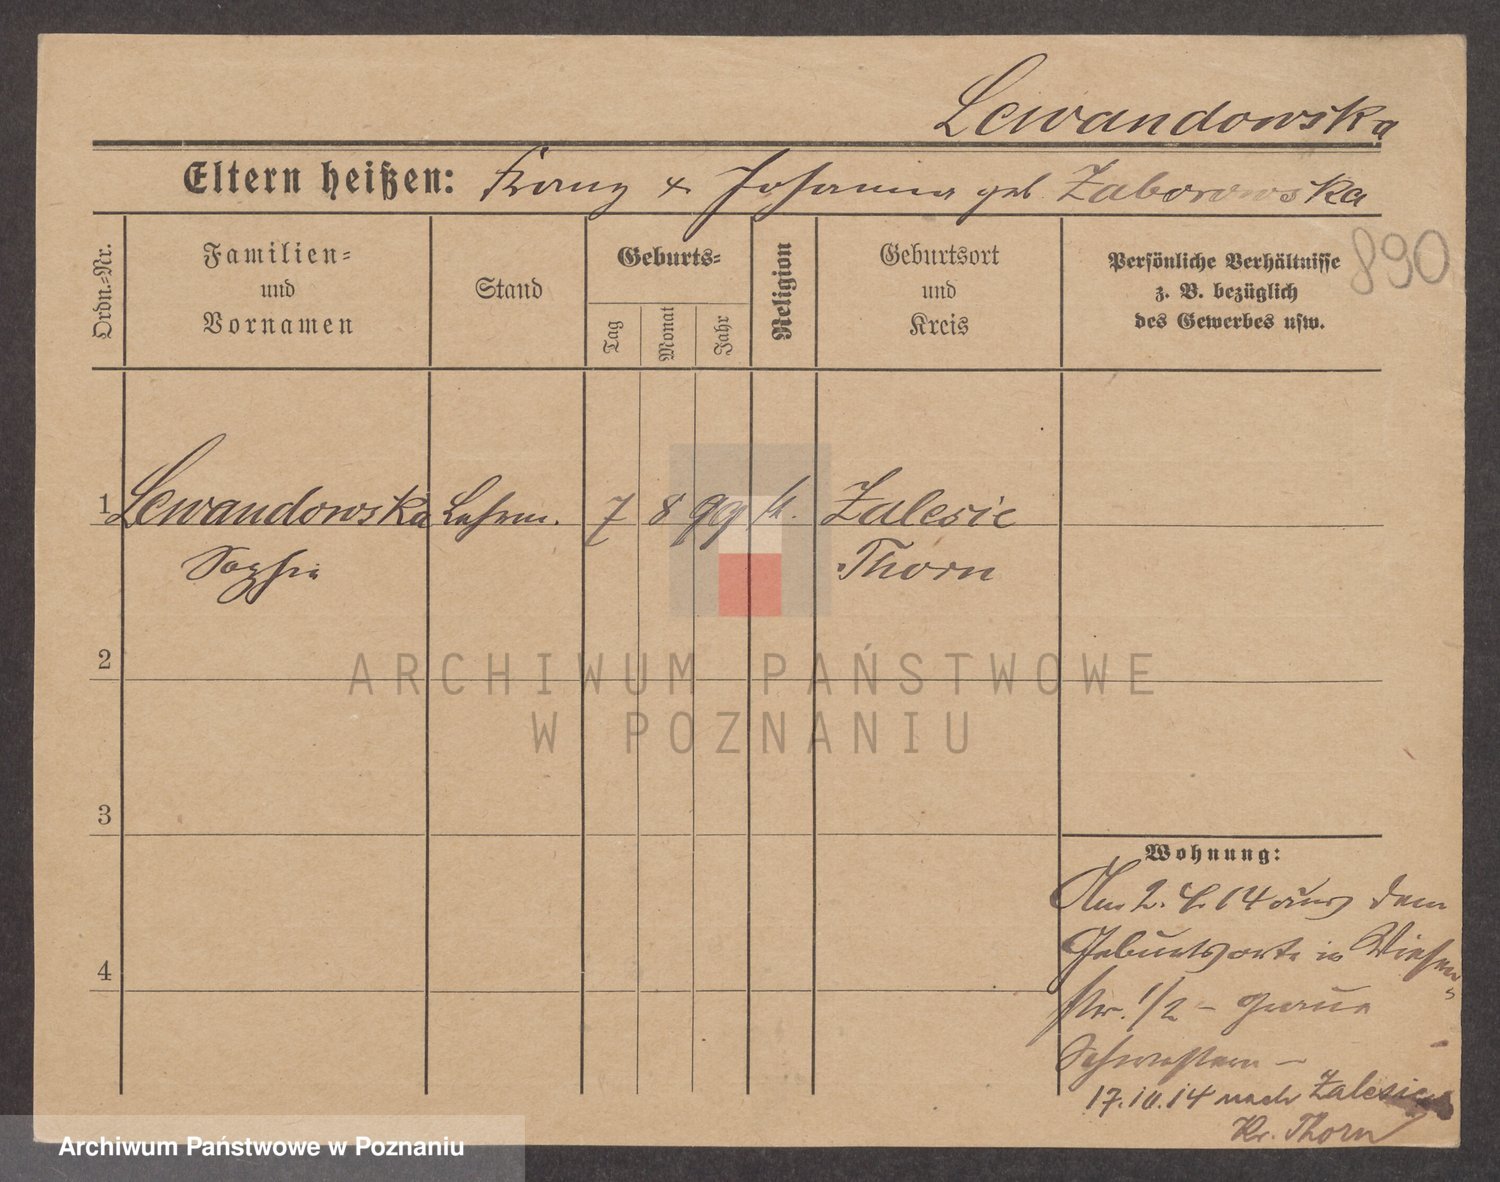 Lewandowska
Eltern heißen: Franz & Johanna geb Zaborowska
890
Ordn.-Nr.
Familien-
und
Vornamen
Stand
Geburts-
Tag
Monat
Jahr
Religion
Geburtsort
und
Kreis
Persönliche Verhältnisse
z. B. bezüglich
des Gewerbes usw.
1 Lewandowska 7 8 99 k. Zalesie
Sophia Thorn
2
ARCHIWUM PAŃSTWOWE
W POZNANIU
3
Wohnung:
Am 2. 4. 14 aus dem
Geburtsorte in Wiesen-
str. 1/2 – Graue
Schwestern –
17.10.14 nach Zalesie
Kr. Thorn
4
Archiwum Państwowe w Poznaniu